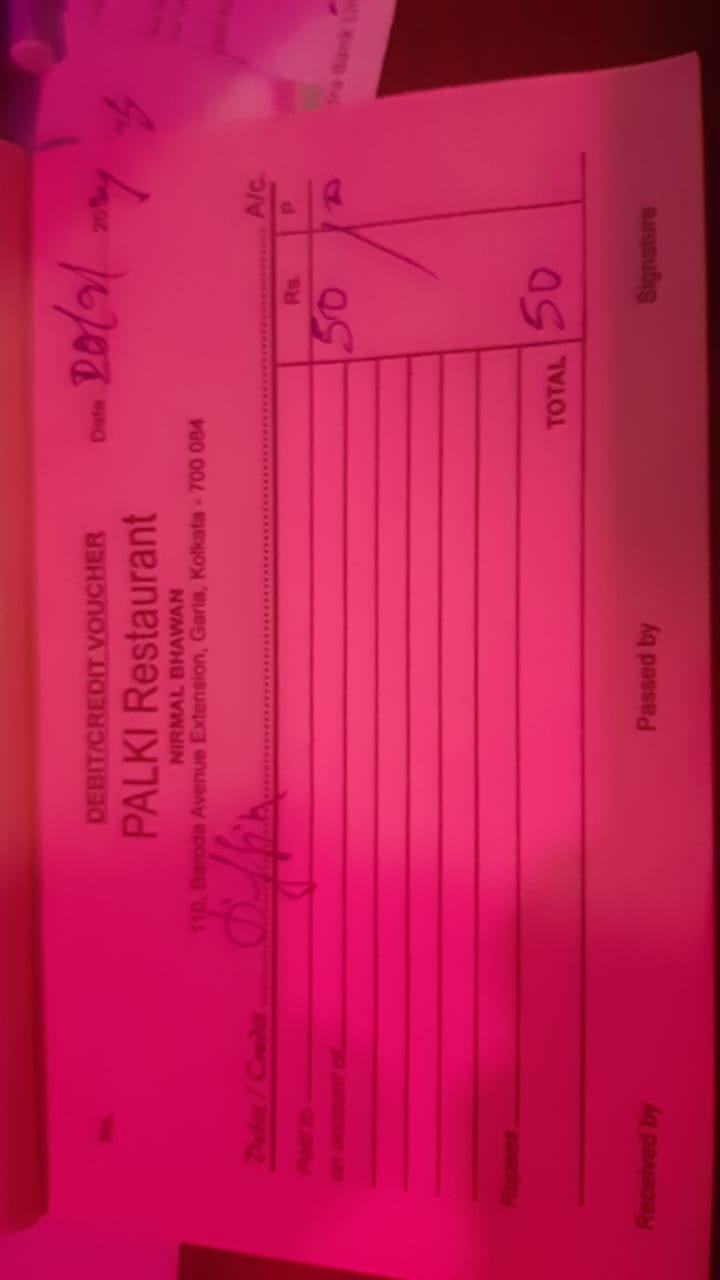 DEBIT/CREDIT VOUCHER
No. Date 20
PALKI Restaurant
NIRMAL BHAWAN
110, Baroda Avenue Extension, Garia, Kolkata - 700 084
Debit / Credit Tiffin A/c.
Paid to Rs. P.
on account of 50
Rupees TOTAL 50
Received by Passed by Signature